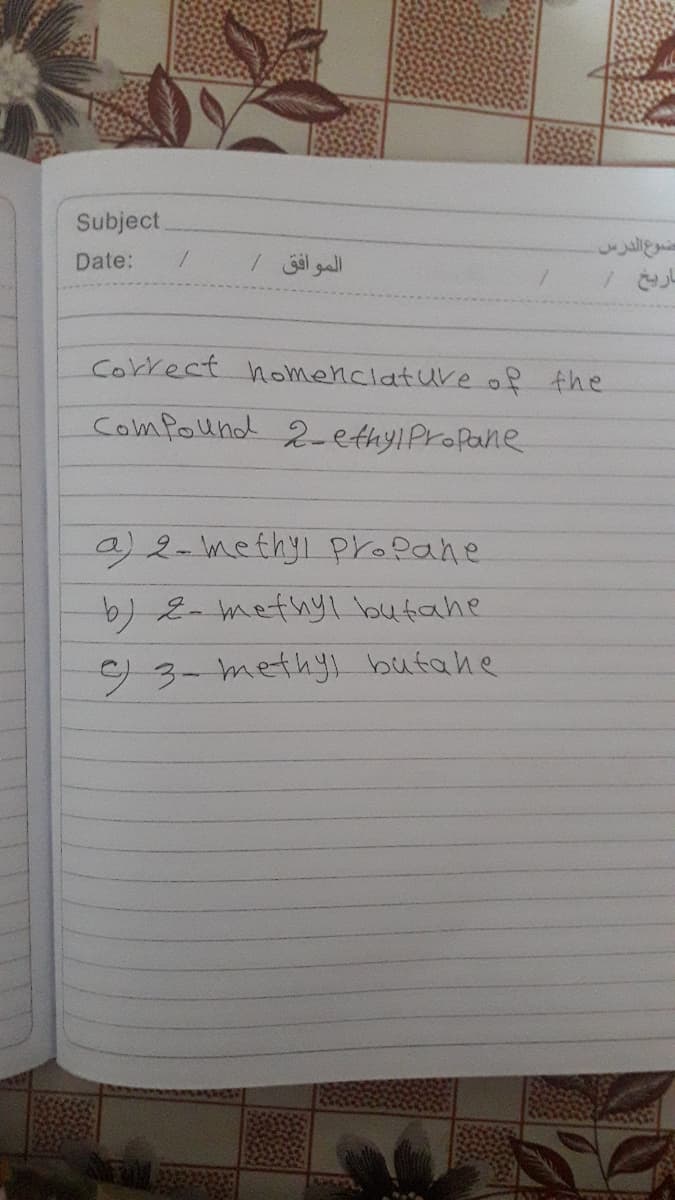 Subject
ضوع الدرس
Date: / / الموافق / / اريخ
Correct nomenclature of the
Compound 2-ethylPropane
a) 2-methyl propane
b) 2-methyl butane
c) 3-methyl butane